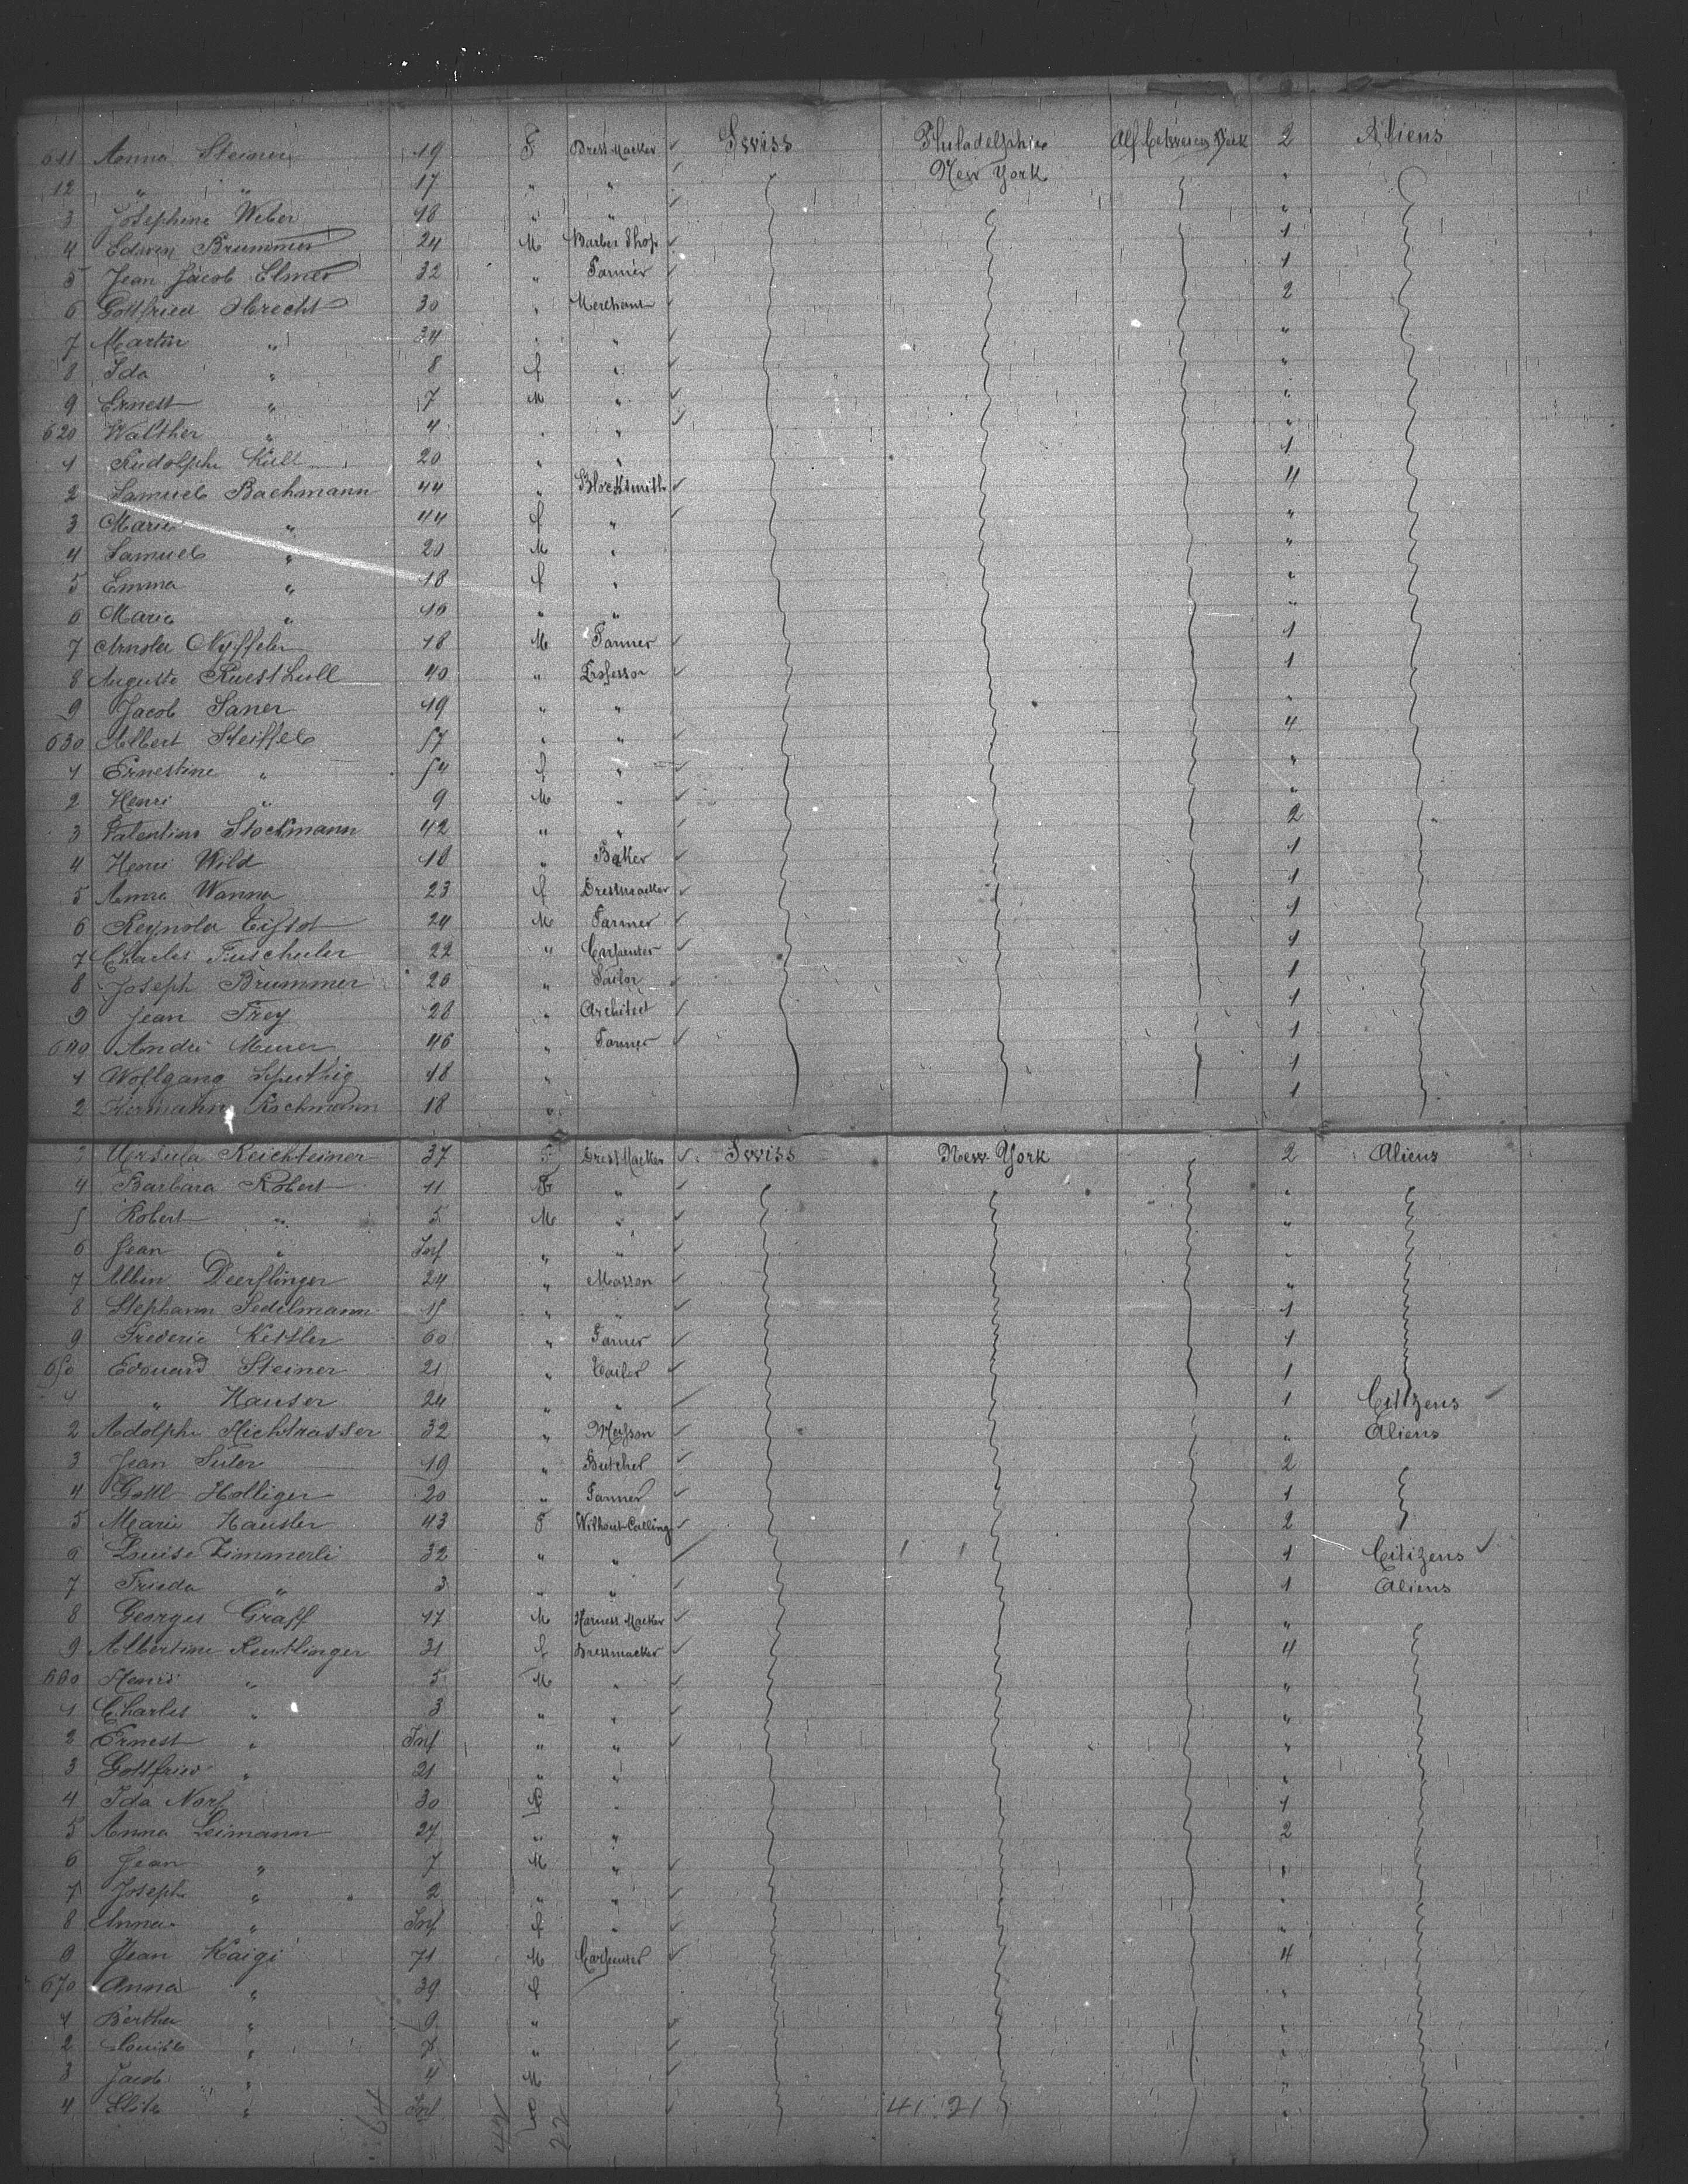 611 Anna Steiner 19 F Dress Macker ✓ Swiss Philadelphie 2 Aliens
12 " " 17 " " ✓ New York "
3 Josephine Weber 18 " " ✓ "
4 Edwin Brummer 24 M Barber Shop ✓ 1
5 Jean Jacob Elmer 32 " Farmer ✓ 1
6 Gottfried 30 " Merchant ✓ 2
7 Martin " 24 " " ✓ "
8 Ida " 8 f " ✓ "
9 Ernest " 7 M " ✓ "
620 Walther " 4 " " ✓ "
1 Rudolphe Kull 20 " " 1
2 Samuel Bachmann 44 " Blacksmith ✓ 4
3 Marie " 44 f " ✓ "
4 Samuel " 20 M " "
5 Emma " 18 f " "
6 Marie " 16 " " "
7 Nyffeler 18 M Farmer ✓ 1
8 Auguste 40 " Professor ✓ 1
9 Jacob Saner 19 " " "
630 Albert Steiffel 57 " " ✓ 4
1 Ernestine " 54 f " ✓ "
2 Henri " 9 M " ✓ "
3 Valentine Stockmann 42 " " ✓ 2
4 Henri Wild 18 " Baker ✓ 1
5 Anna Wanna 23 f Dressmacker ✓ 1
6 Tissot 24 M Farmer ✓ 1
7 Charles 22 " Carpenter ✓ 1
8 Joseph Brummer 20 " Tailor ✓ 1
9 Jean Frey 28 " Architect ✓ 1
640 André Meier 46 " Farmer ✓ 1
1 Woflgang 18 " 1
2 Hermann 18 " 1
3 Ursula Reichteiner 37 F Dress Macker ✓ Swiss New York 2 Aliens
4 Barbara Robert 11 F " ✓ "
5 Robert " 5 M " ✓ "
6 Jean " Inf " " ✓ "
7 Albin Deerflinger 24 " Masson ✓ "
8 Stephann Sedelmann 15 " " ✓ 1
9 Frederic Kessler 60 " Farmer ✓ 1
650 Edouard Steiner 21 " Tailor ✓ 1
1 " Hauser 24 " " 1 Citizens ✓
2 Adolphe 32 " Masson ✓ " Aliens
3 Jean Suter 19 " Butcher ✓ 2
4 Gottl Holliger 20 " Farmer ✓ 1
5 Marie Hausler 43 F Without Calling ✓ 2
6 Louise Zimmerli 32 " " 1 Citizens ✓
7 Frieda " 3 " " ✓ 1 Aliens
8 Georges Graff 17 M Harness Macker ✓ "
9 Albertine Reutlinger 31 f Dressmacker ✓ 4
660 Henri " 5 M " ✓ "
1 Charles " 3 " " ✓ "
2 Ernest " Inf " " ✓ "
3 Gottfried " 21 " " "
4 Ida Norf 30 f " 1
5 Anna Leimann 27 " " 2
6 Jean " 7 M " ✓ "
7 Joseph " 2 " " ✓ "
8 Anna " Inf f " ✓ "
9 Jean Kaigi 71 M Carpenter ✓ 4
670 Anna " 39 f "
1 Bertha " 9 " ✓ "
2 Louise " 7 " ✓ "
3 Jacob " 4 M ✓ "
4 Elise " Inf f ✓ "
64 42 22 41 21